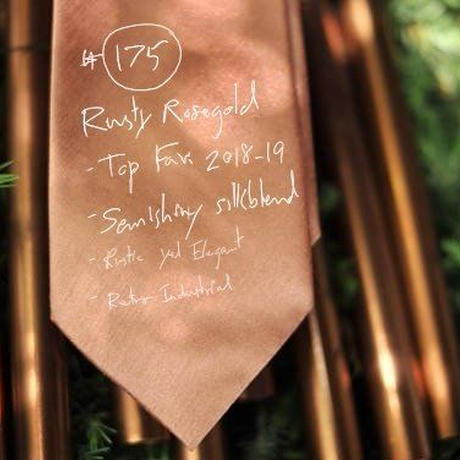 # 175
Rusty Rosegold
- Top Fav. 2018-19
- Semishiny silkblend
- Rustic yet Elegant
- Retro Industrial